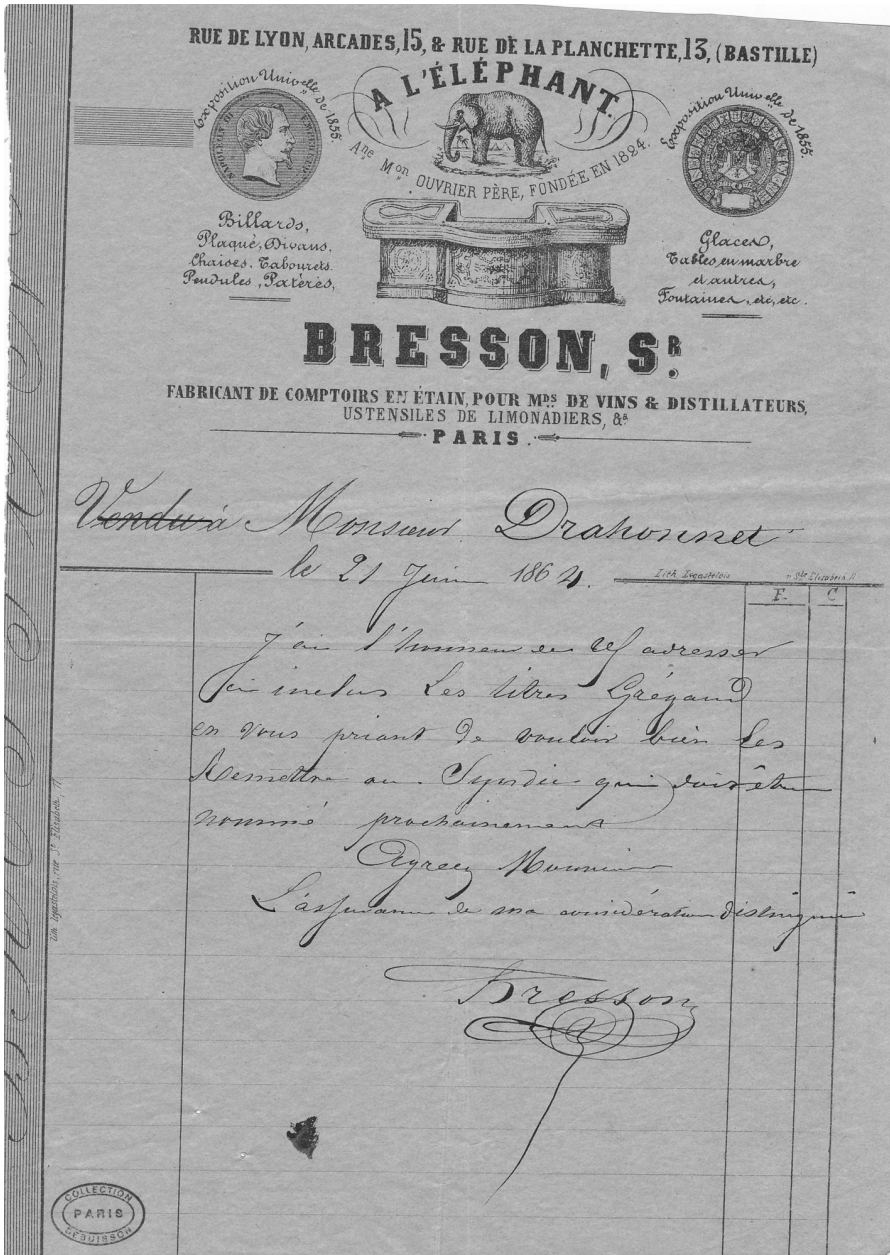 RUE DE LYON, ARCADES, 15, & RUE DE LA PLANCHETTE, 13, (BASTILLE)
Exposition Univelle de 1855.
NAPOLEON III EMPEREUR
A L'ÉLÉPHANT.
Exposition Univelle de 1855.
Ane Mon OUVRIER PÈRE, FONDÉE EN 1824.
Billards,
Plaqué, Divans.
Chaises. Tabourets.
Pendules, Patères,
Glaces,
Tables en marbre
et autres,
Fontaines, etc, etc.
BRESSON, SR.
FABRICANT DE COMPTOIRS EN ÉTAIN, POUR MDS. DE VINS & DISTILLATEURS,
USTENSILES DE LIMONADIERS, &a
PARIS.
Vendu à Monsieur Drahonnet
le 21 Juin 1864.
Lith. r. Ste Elisabeth, 11
F. C
J'ai l'honneur de adresser
ci inclus Les titres Grégaud
en vous priant de vouloir bien Les
Remettre au Syndic qui doit être
nommé prochainement
Agreez Monsieur
L'assurance de ma considération distinguée
Bresson
COLLECTION
PARIS
DEBUISSON